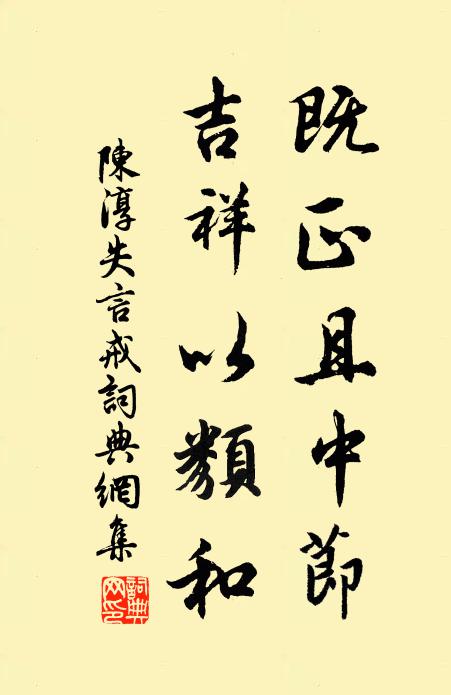 既正且中節
吉祥以類和
陳淳失言戒詞典網集
詞典网印